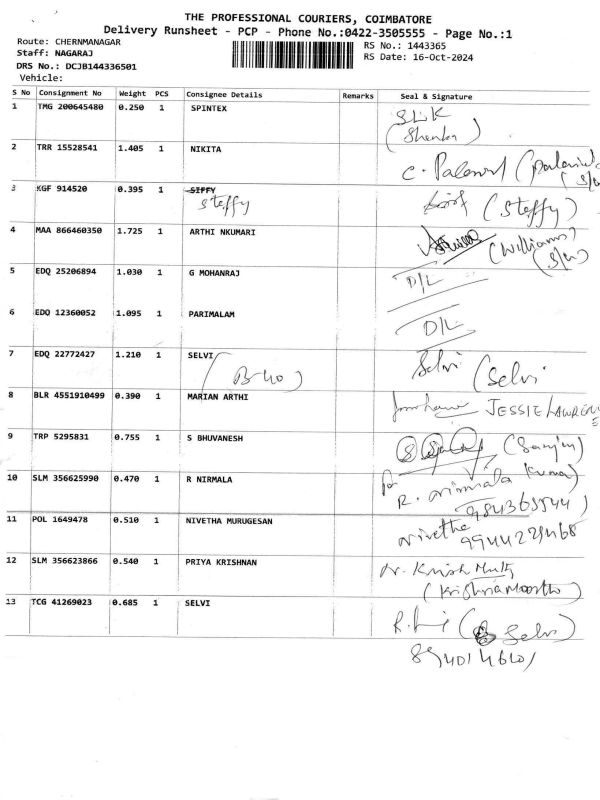 THE PROFESSIONAL COURIERS, COIMBATORE
Delivery Runsheet - PCP - Phone No.:0422-3505555 - Page No.:1
Route: CHERNMANAGAR RS No.: 1443365
Staff: NAGARAJ RS Date: 16-Oct-2024
DRS No.: DCJB144336501
Vehicle:
S No Consignment No Weight PCS Consignee Details Remarks Seal & Signature
1 TMG 200645480 0.250 1 SPINTEX
2 TRR 15528541 1.405 1 NIKITA
3 KGF 914520 0.395 1 SIFFY (Steffy)
Steffy
4 MAA 866460350 1.725 1 ARTHI NKUMARI (Williams)
(S/w)
5 EDQ 25206894 1.030 1 G MOHANRAJ D/L
6 EDO 12360052 1.095 1 PARIMALAM D/L
7 EDQ 22772427 1.210 1 SELVI Selvi (Selvi
8 BLR 4551910499 0.390 1 MARIAN ARTHI JESSIE LAWRENE
9 TRP 5295831 0.755 1 S BHUVANESH
10 SLM 356625990 0.470 1 R NIRMALA R. Nirmala
11 POL 1649478 0.510 1 NIVETHA MURUGESAN Nivetha
12 SLM 356623866 0.540 1 PRIYA KRISHNAN
(Krishnamoortho)
13 TCG 41269023 0.685 1 SELVI Selvi)